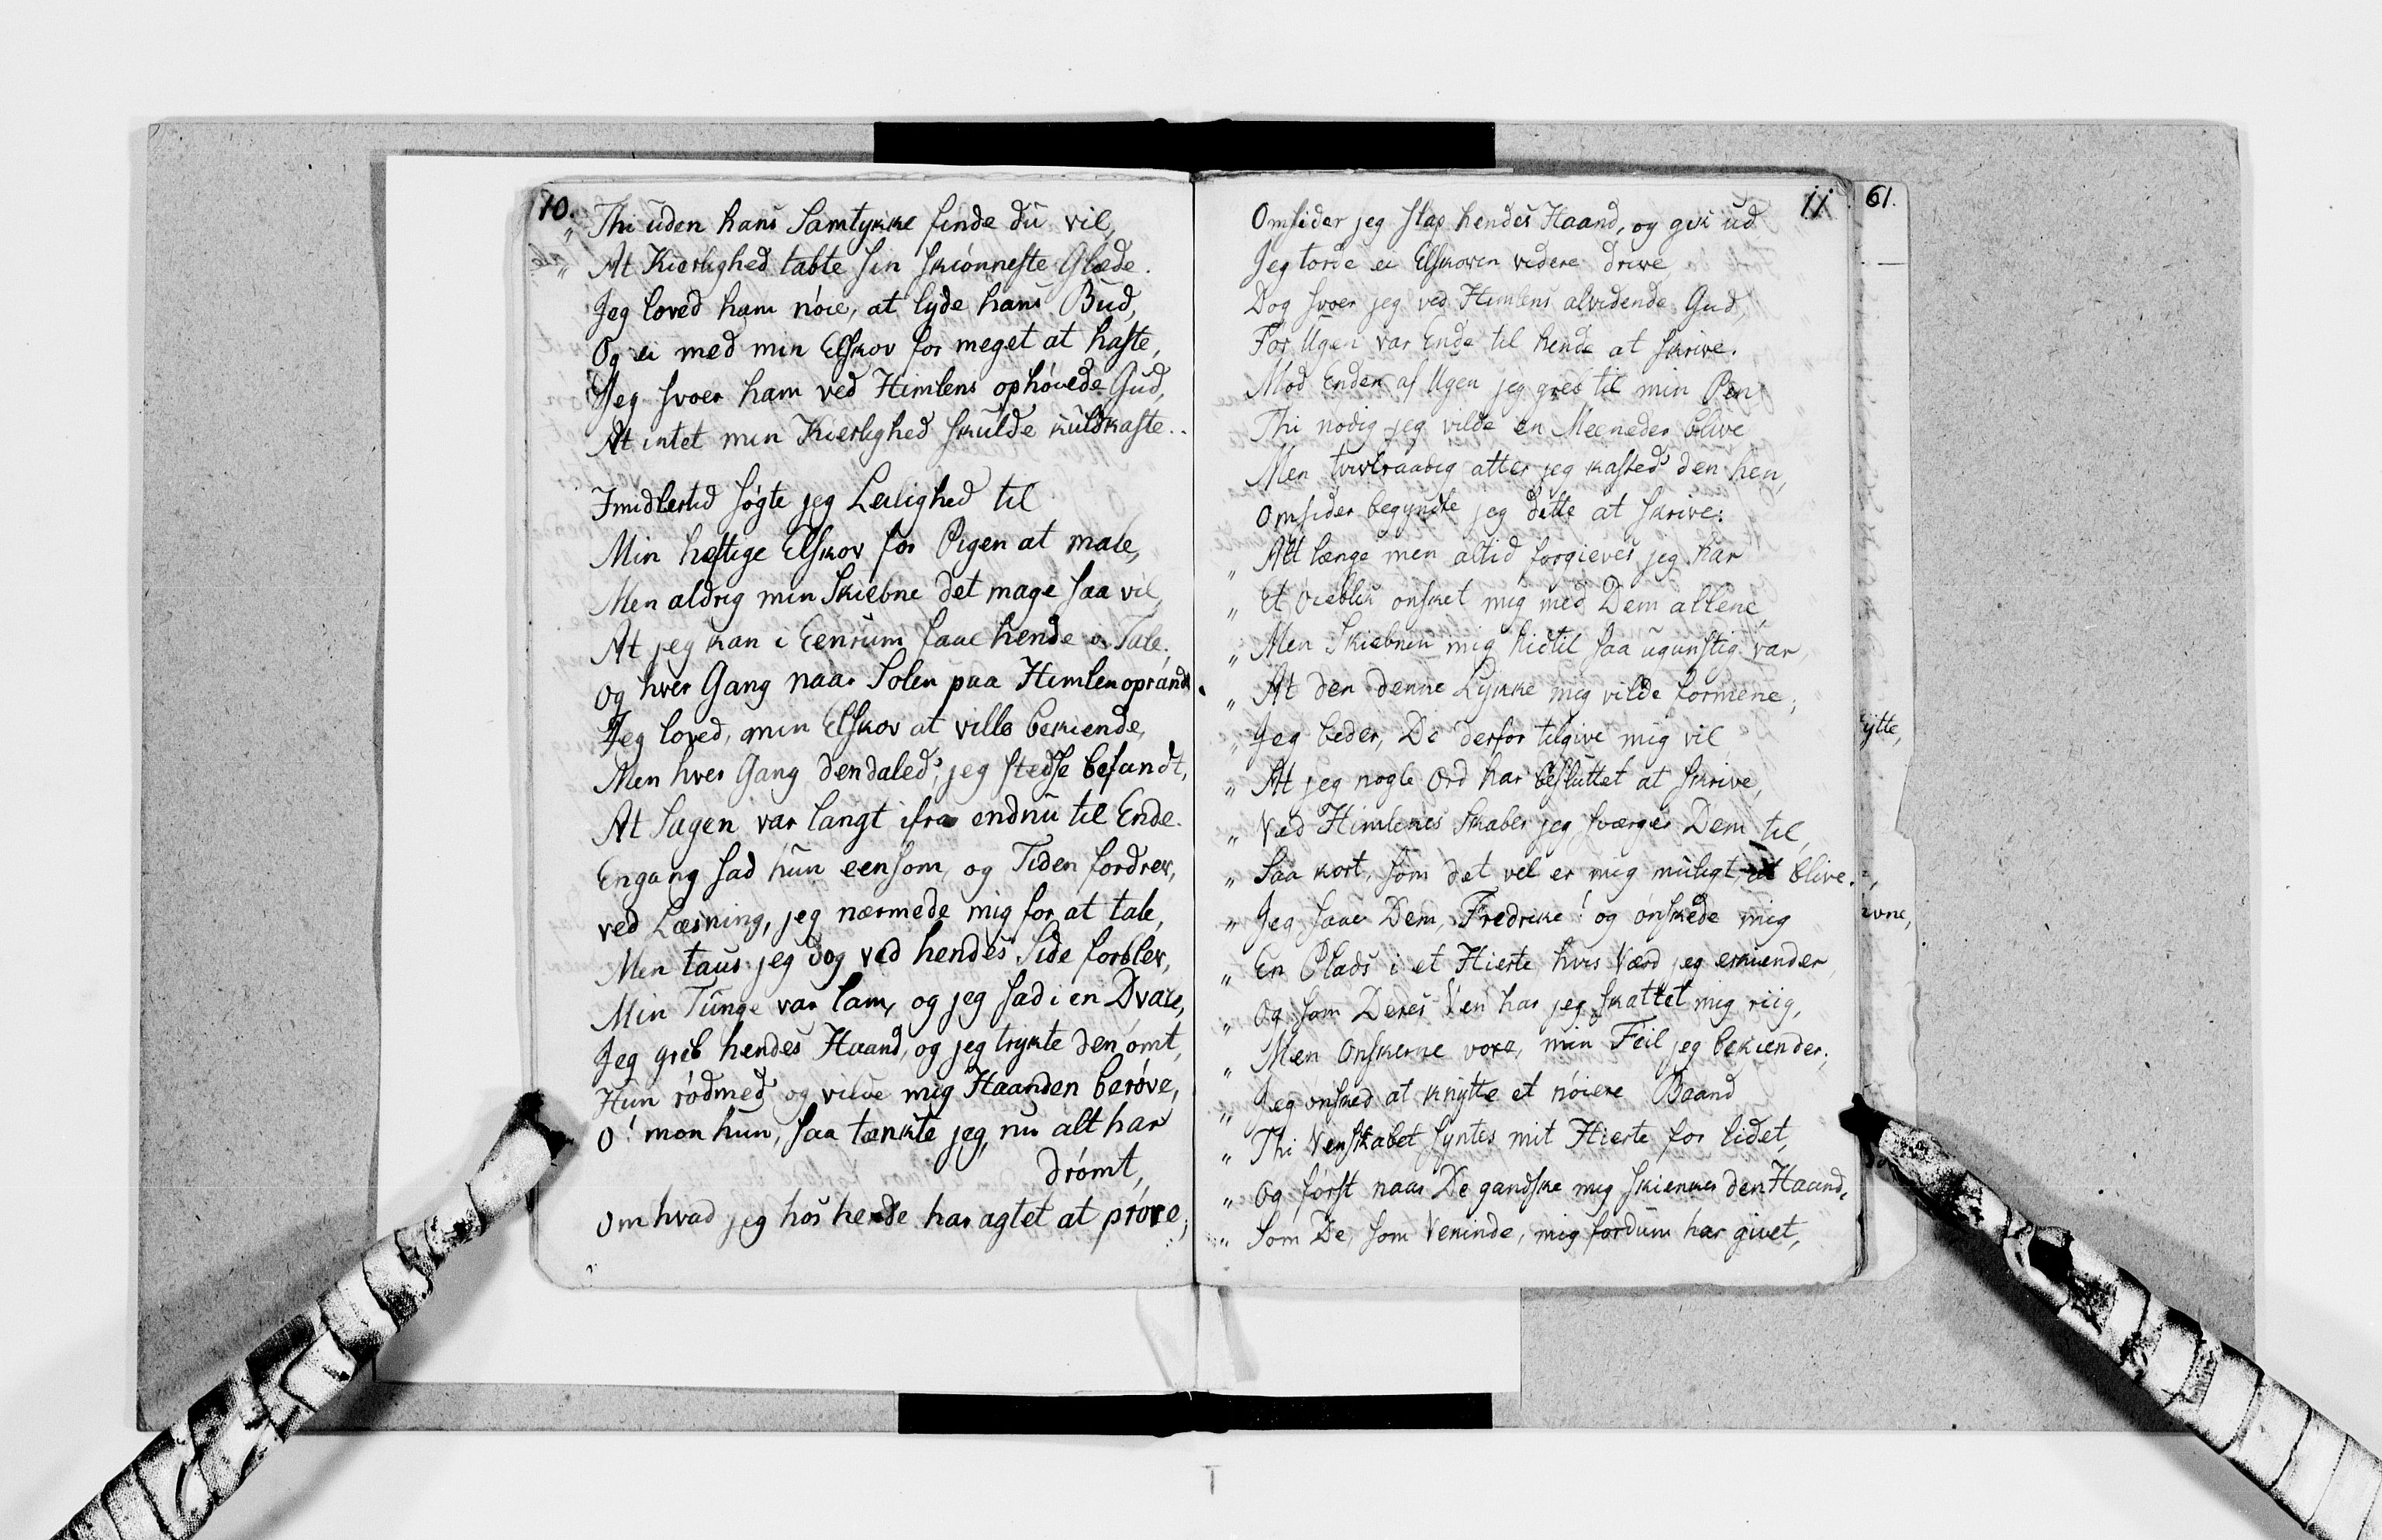 10.
„ Thi uden hans Samtykke finde du vil,
„ At Kierlighed tabte sin skiønneste Glæde.
Jeg loved ham nøie, at lyde hans Bud,
Og ei med min Elskov for meget at haste,
Jeg svoer ham ved Himlens ophøiede Gud,
At intet min Kierlighed skulde kuldkaste.
Imidlertid søgte jeg Leilighed til
Min heftige Elskov for Pigen at male,
Men aldrig min Skiebne det mage saa vil,
At jeg kan i Eenrum faae hende i Tale.
Og hver Gang naar Solen paa Himlen oprandt,
Jeg loved, min Elskov at ville bekiende,
Men hver Gang den daled, jeg stedse befandt,
At Sagen var langt ifra endnu til Ende.
Engang sad hun eensom, og Tiden fordrev,
ved Læsning, jeg nærmede mig for at tale,
Men taus jeg dog ved hendes Side forblev,
Min Tunge var lam, og jeg sad i en Dvale,
Jeg greb hendes Haand, og jeg trykte den ømt,
Hun rødmed og vilde mig Haanden berøve,
O! mon hun, saa tænkte jeg, nu alt har
drømt,
Om hvad jeg hos hende har agtet at prøve,
11
Omsider jeg slap hendes Haand, og gik ud
Jeg torde ei Elskoven videre drive,
Dog svoer jeg ved Himlens alvidende Gud,
Før Ugen var Ende til hende at skrive.
Mod Enden af Ugen jeg greb til min Pen
Thi nødig jeg vilde en Meeneder blive
Men tvivlraadig atter jeg kasted den hen,
Omsider begyndte jeg dette at skrive:
„ Alt længe men altid forgieves jeg har
„ Et Øieblik ønsket mig med Dem allene,
„ Men Skiebnen mig hidtil saa ugunstig var,
„ At den denne Lykke mig vilde formene;
„ Jeg beder, De derfor tilgive mig vil
„ At jeg nogle Ord har besluttet at skrive,
„ Ved Himlenes Skaber jeg sværger Dem til,
„ Saa kort, som det vel er mig muligt, at blive.
„ Jeg saae Dem, Fredrike! og ønskede mig
„ En Plads i et Hierte hvis Værd jeg erkiender,
„ Og som Deres Ven har jeg skattet mig riig,
„ Men Ønskerne voxe, min Feil jeg bekiender;
„ Jeg ønsked at knytte et nøiere Baand
„ Thi Venskabet syntes mit Hierte for lidet,
„ Og først naar De gandske mig skienker den Haand,
„ Som De, som Veninde, mig fordum har givet,
61.